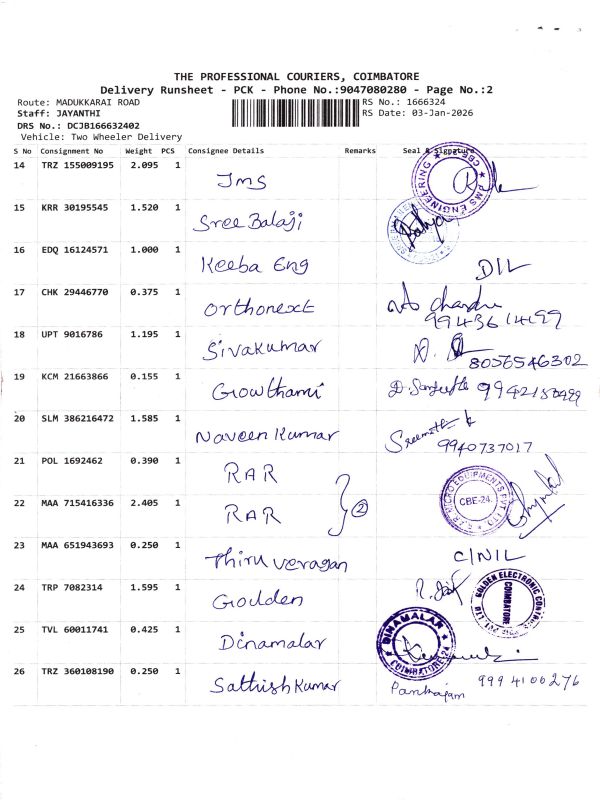 THE PROFESSIONAL COURIERS, COIMBATORE
Delivery Runsheet - PCK - Phone No.:9047080280 - Page No.:2
Route: MADUKKARAI ROAD RS No.: 1666324
Staff: JAYANTHI RS Date: 03-Jan-2026
DRS No.: DCJB166632402
Vehicle: Two Wheeler Delivery
S No Consignment No Weight PCS Consignee Details Remarks Seal & Signature
14 TRZ 155009195 2.095 1 Jms
15 KRR 30195545 1.520 1 Sree Balaji
16 EDQ 16124571 1.000 1 Keeba Eng DIL
17 CHK 29446770 0.375 1 Orthonext
18 UPT 9016786 1.195 1 Sivakumar 8056546302
19 KCM 21663866 0.155 1 Gowthami
20 SLM 386216472 1.585 1 Naveen Kumar 9940737017
21 POL 1692462 0.390 1 RAR
22 MAA 715416336 2.405 1 RAR 2 CBE-24.
23 MAA 651943693 0.250 1 Thiru veragan C/NIL
24 TRP 7082314 1.595 1 Goulden GOLDEN ELECTRONIC COIMBATORE
25 TVL 60011741 0.425 1 Dinamalar DINAMALAR COIMBATORE-24
26 TRZ 360108190 0.250 1 Sathish Kumar Pankajam 9994100276